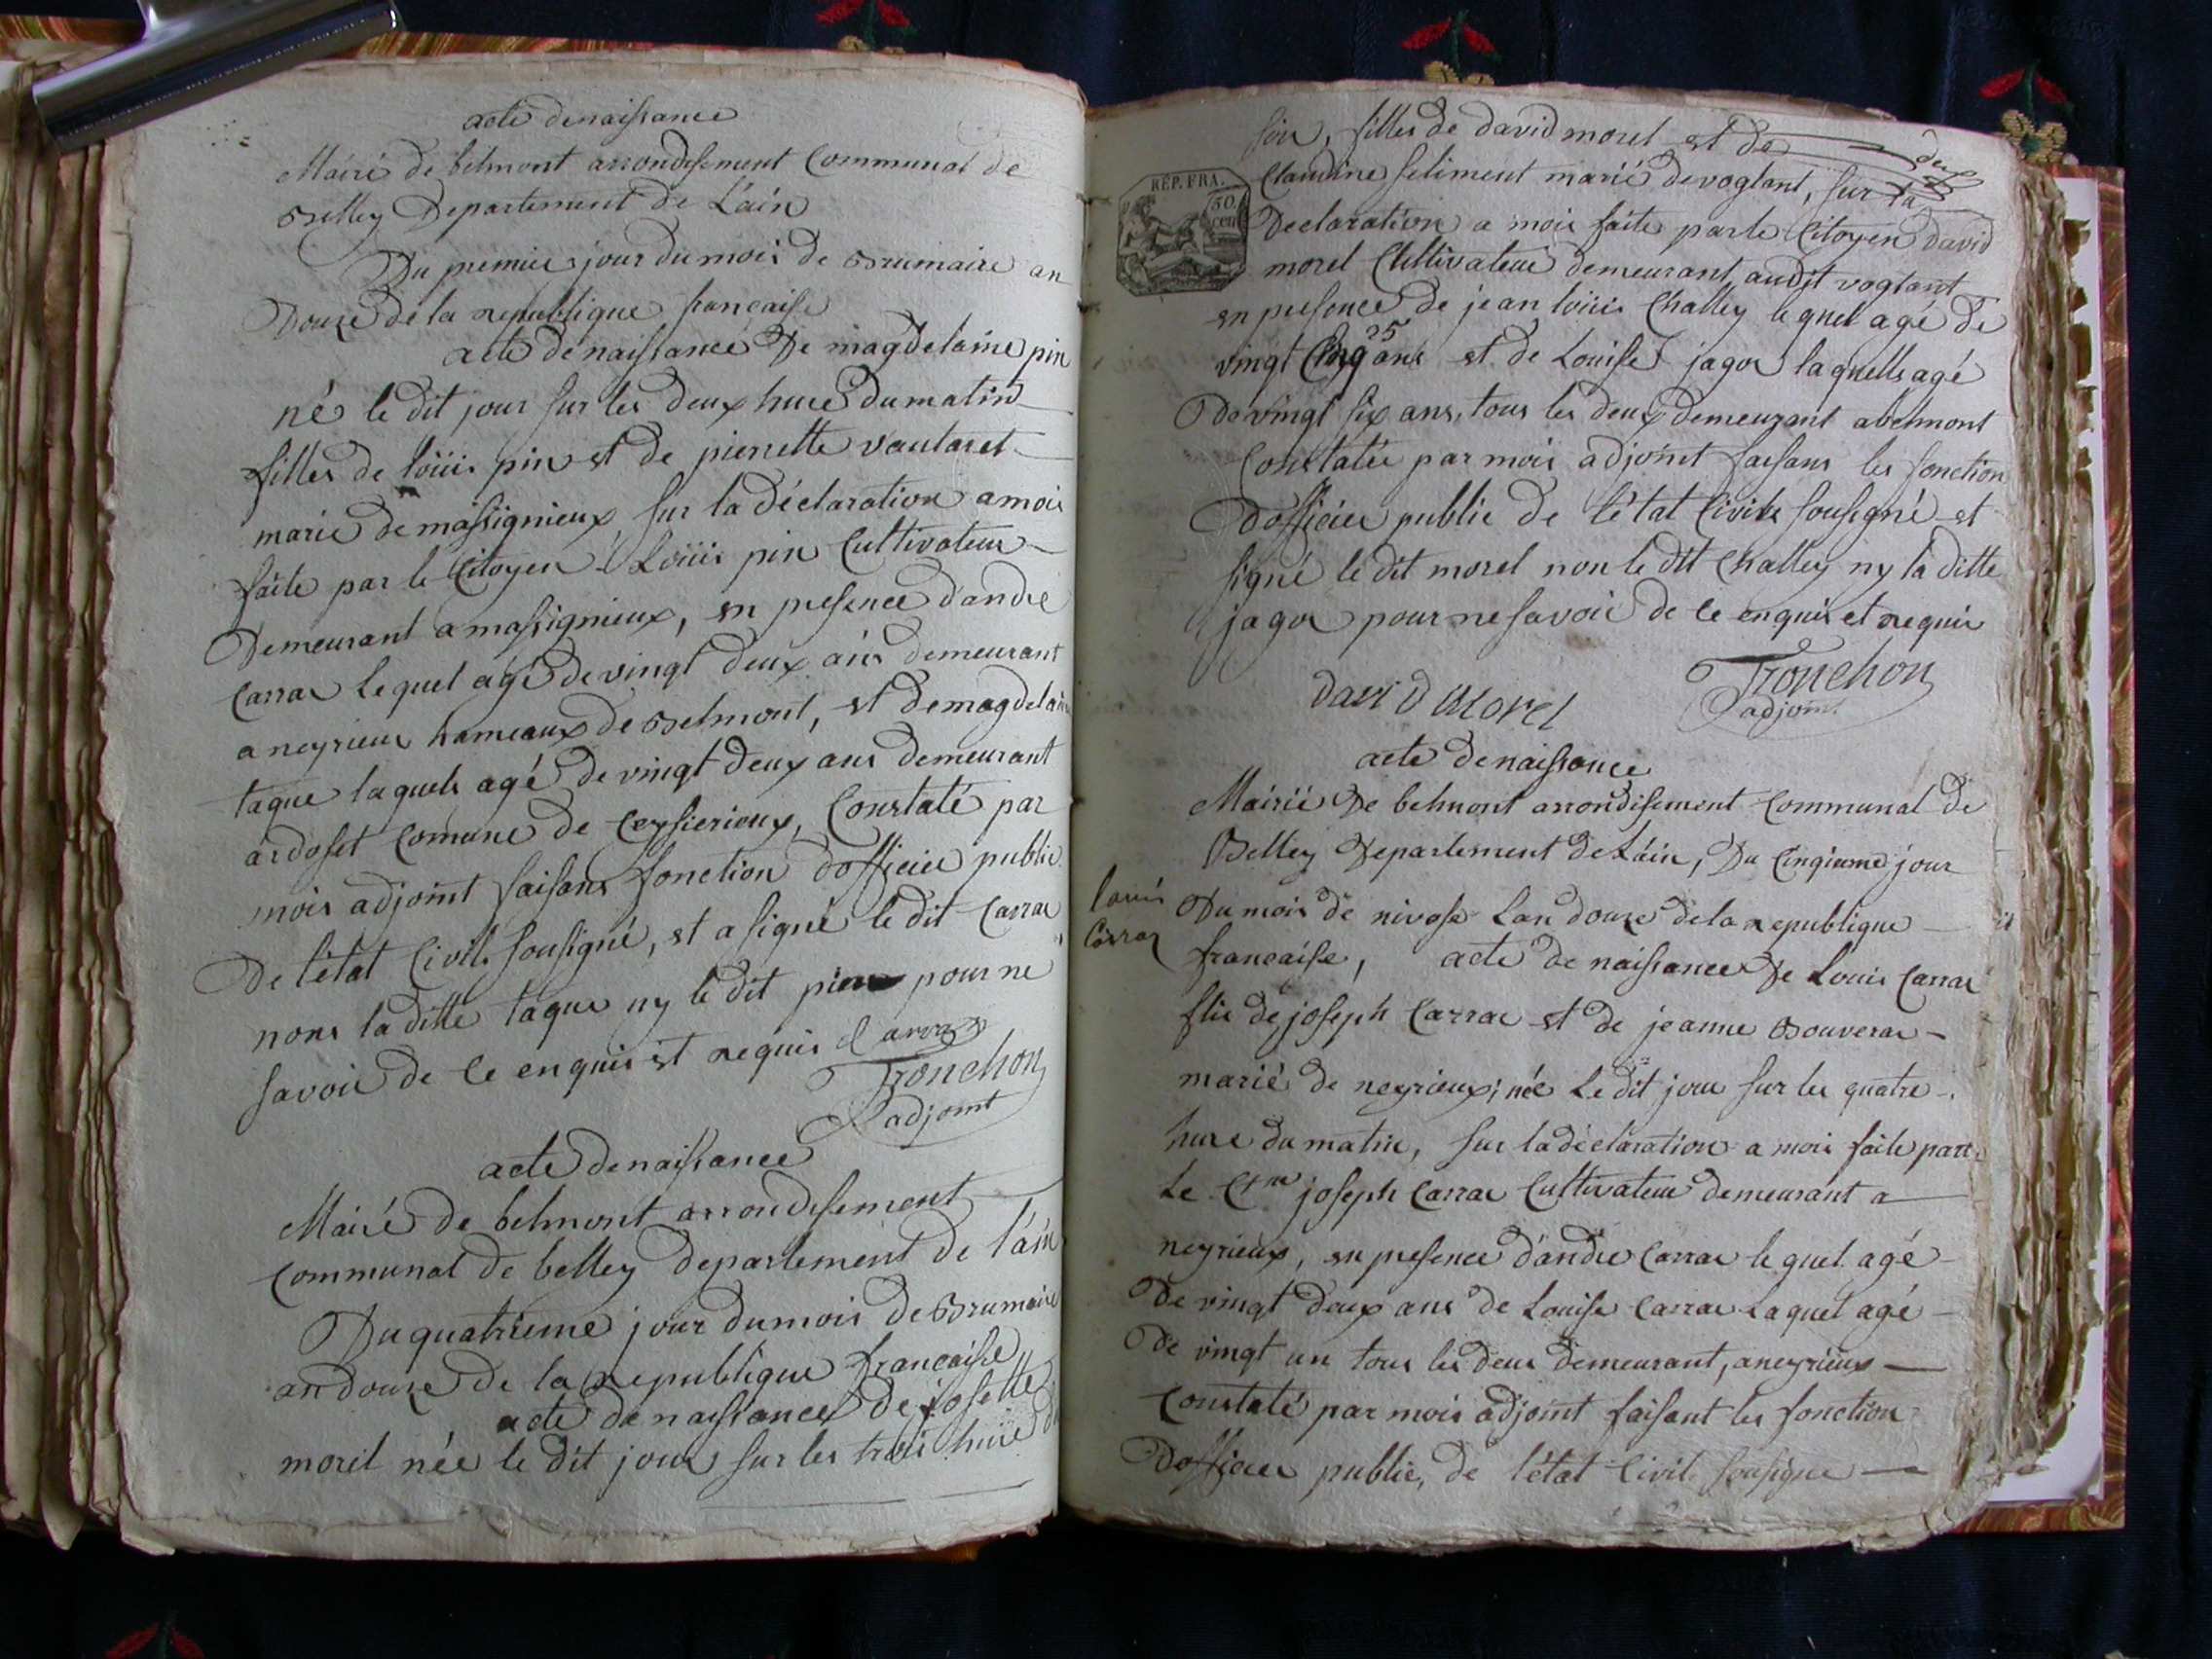 acte denaissance
Mairie de belmont arrondisement Communal de
Belley Departement de L'ain
Du premier jour du mois de Brumaire an
Douze de la republique francaise
acte de naissance De magdelaine pin
né le dit jour sur les deux hure du matin
filles de loüis pin et de pierrette vautaret
marié de massignieux sur la déclaration a moi
faite par le Citoyen Loüis pin Cultivateur
Demeurant a massignieux, en presence d'andré
Carrar le quel agé de vingt deux ans demeurant
a neyrieux hameaux de Belmont, et de magdelaine
taque la quels agé de vingt deux ans demeurant
ardoset Comune de Ceyserieux, Constaté par
mois adjoint faisans fonction dofficier public
De l'état Civil sousigné, et a signé le dit Carrar
nons la ditte taque ny le dit pin pour ne
savoir de ce enquis et requis Carraz
Tronchon
adjoint
acte denaissance
Mairé de belmont arrondisement
Communal de belley departement de l'ain
Du quatrieme jour du mois de Brumaire
an douze de la republique francaise
acte de naissance de josette
morel née le dit jour sur les trois hure du
soir, filles de david morel et de
Claudine seliment marié de voglant, sur la
Declaration a mois faite par le Citoyen david
REP. FRA.
50.
cen
morel Cultivateur demeurant audit voglant
en presence de jean loüis Challey le quel agé de
25
vingt Cinq ans et de Louise jagou laquelle agé
De vingt six ans, tous les deux demeurant a belmont
Constatée par mois adjoint faisans les fonction
Dofficier public de l'état Civile sousigné et
signé le dit morel non le dit Challey ny la ditte
jagou pour ne savoir de ce enquis et requis
David Morel
Tronchon
adjoint
acte denaissance
Mairie De belmont arrondisement Communal de
Belley Departement de L'ain, Du Cinqieme jour
Louis
Carraz
Du mois de nivose Lan douze de la republique
francaise, acte de naissance De Louis Carrar
flis de joseph Carrar et de jeanne Bouverar
marié de neyrieux, née Le dit jour sur les quatre
hure du matin, sur la déclaration a mois faite parr
Le Cten joseph Carrar Cultivateur demeurant a
neyrieux, en presence d'andré Carrar le quel agé
De vingt deux ans de Louise Carrar Laquel agé
De vingt un tous les deux demeurant, a neyrieux
Constaté par mois adjoint faisant les fonction
Dofficier public, de l'état Civil sousigne